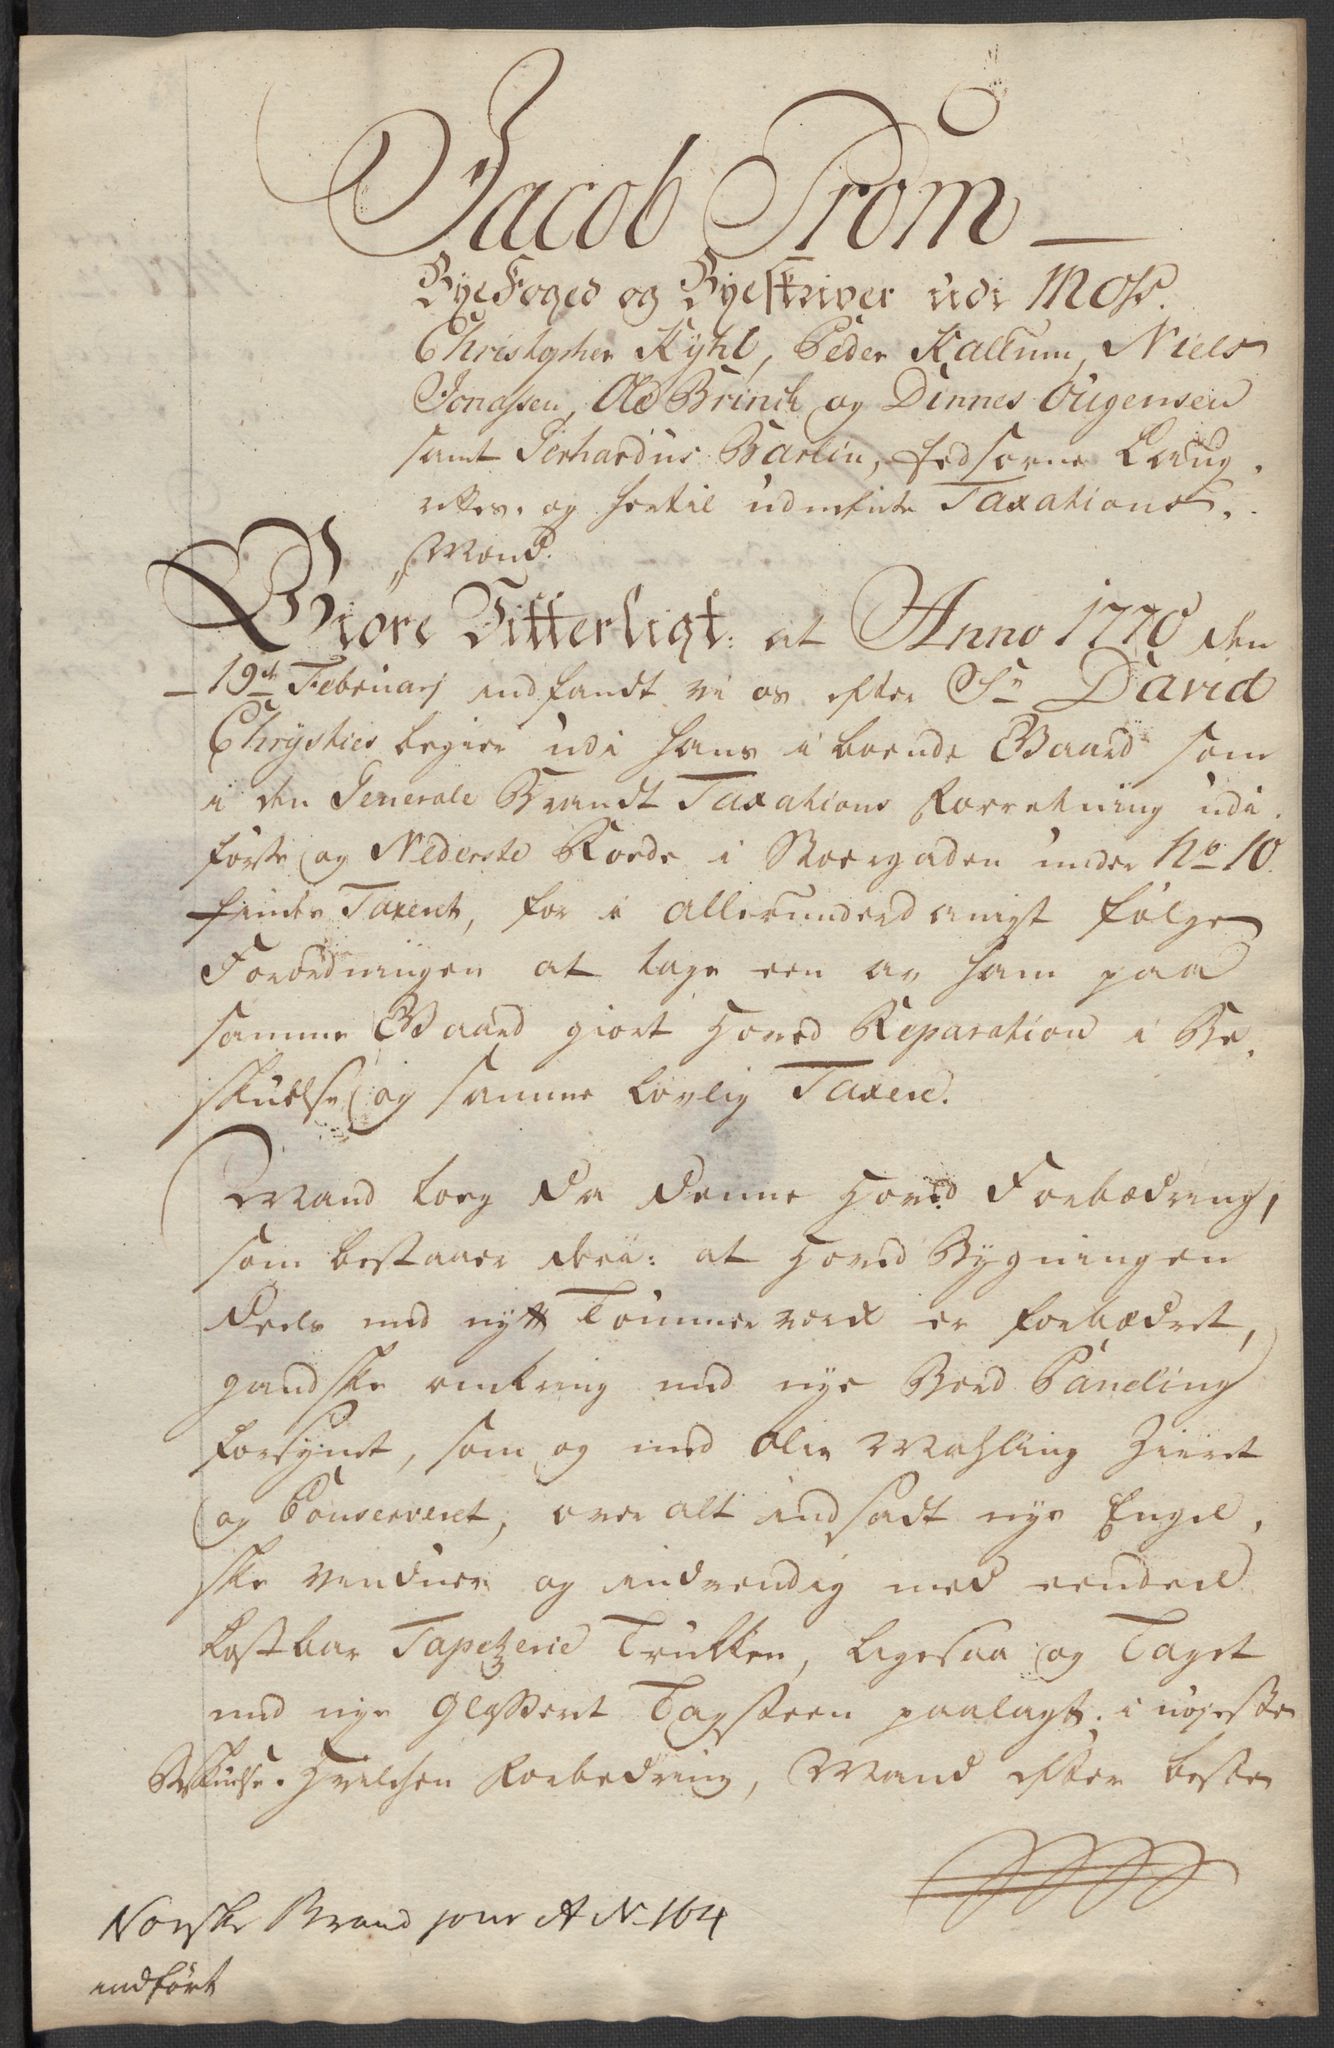 Jacob Trom
Bye Foged og Byeskriver udi Moss.
Christopher Kyhl, Peder Kallum, Niels
Jonassen, Ole Brinch og Dinnes Ougensen
samt Gerhardus Barlin, Eedsorne Laug-
rettes- og hertil udmeldte Taxations-
Mænd.
Giøre Vitterligt: at Anno 1770 den
19de Februarj indfandt vi os efter Sr. David
Chrysties begier udi hans iboende Gaard som
i den Generale Brandt Taxations Forretning udi
første og Nederste Roede i Storgaden under No. 10.
findes Taxeret, for i allerunderdanigst følge
Forordningen at tage een av ham paa
samme Gaard giort Hoved Reparation i Be-
skuelse og samme lovlig Taxere.
Mand toeg da denne Hoved Forbædring,
som bestaaer derí: at Hoved Bygningen
deels med nytt Tømmerverk er forbædret,
gandske omkring med nye Bord Paneling
forsynet, som og med Olie Mahling Zieret
og Conserveret, over alt indsadt nye Engel-
ske Vinduer og indvendig med eendeel
kostbar Tapetzerie Trukken, ligesaa og Taget
med nye Glasseret Tagsteen paalagt. i nøjeste
Beskuelse. Hvilcken Forbedring, Mand efter beste
Norske Brand jour A No 164
indført